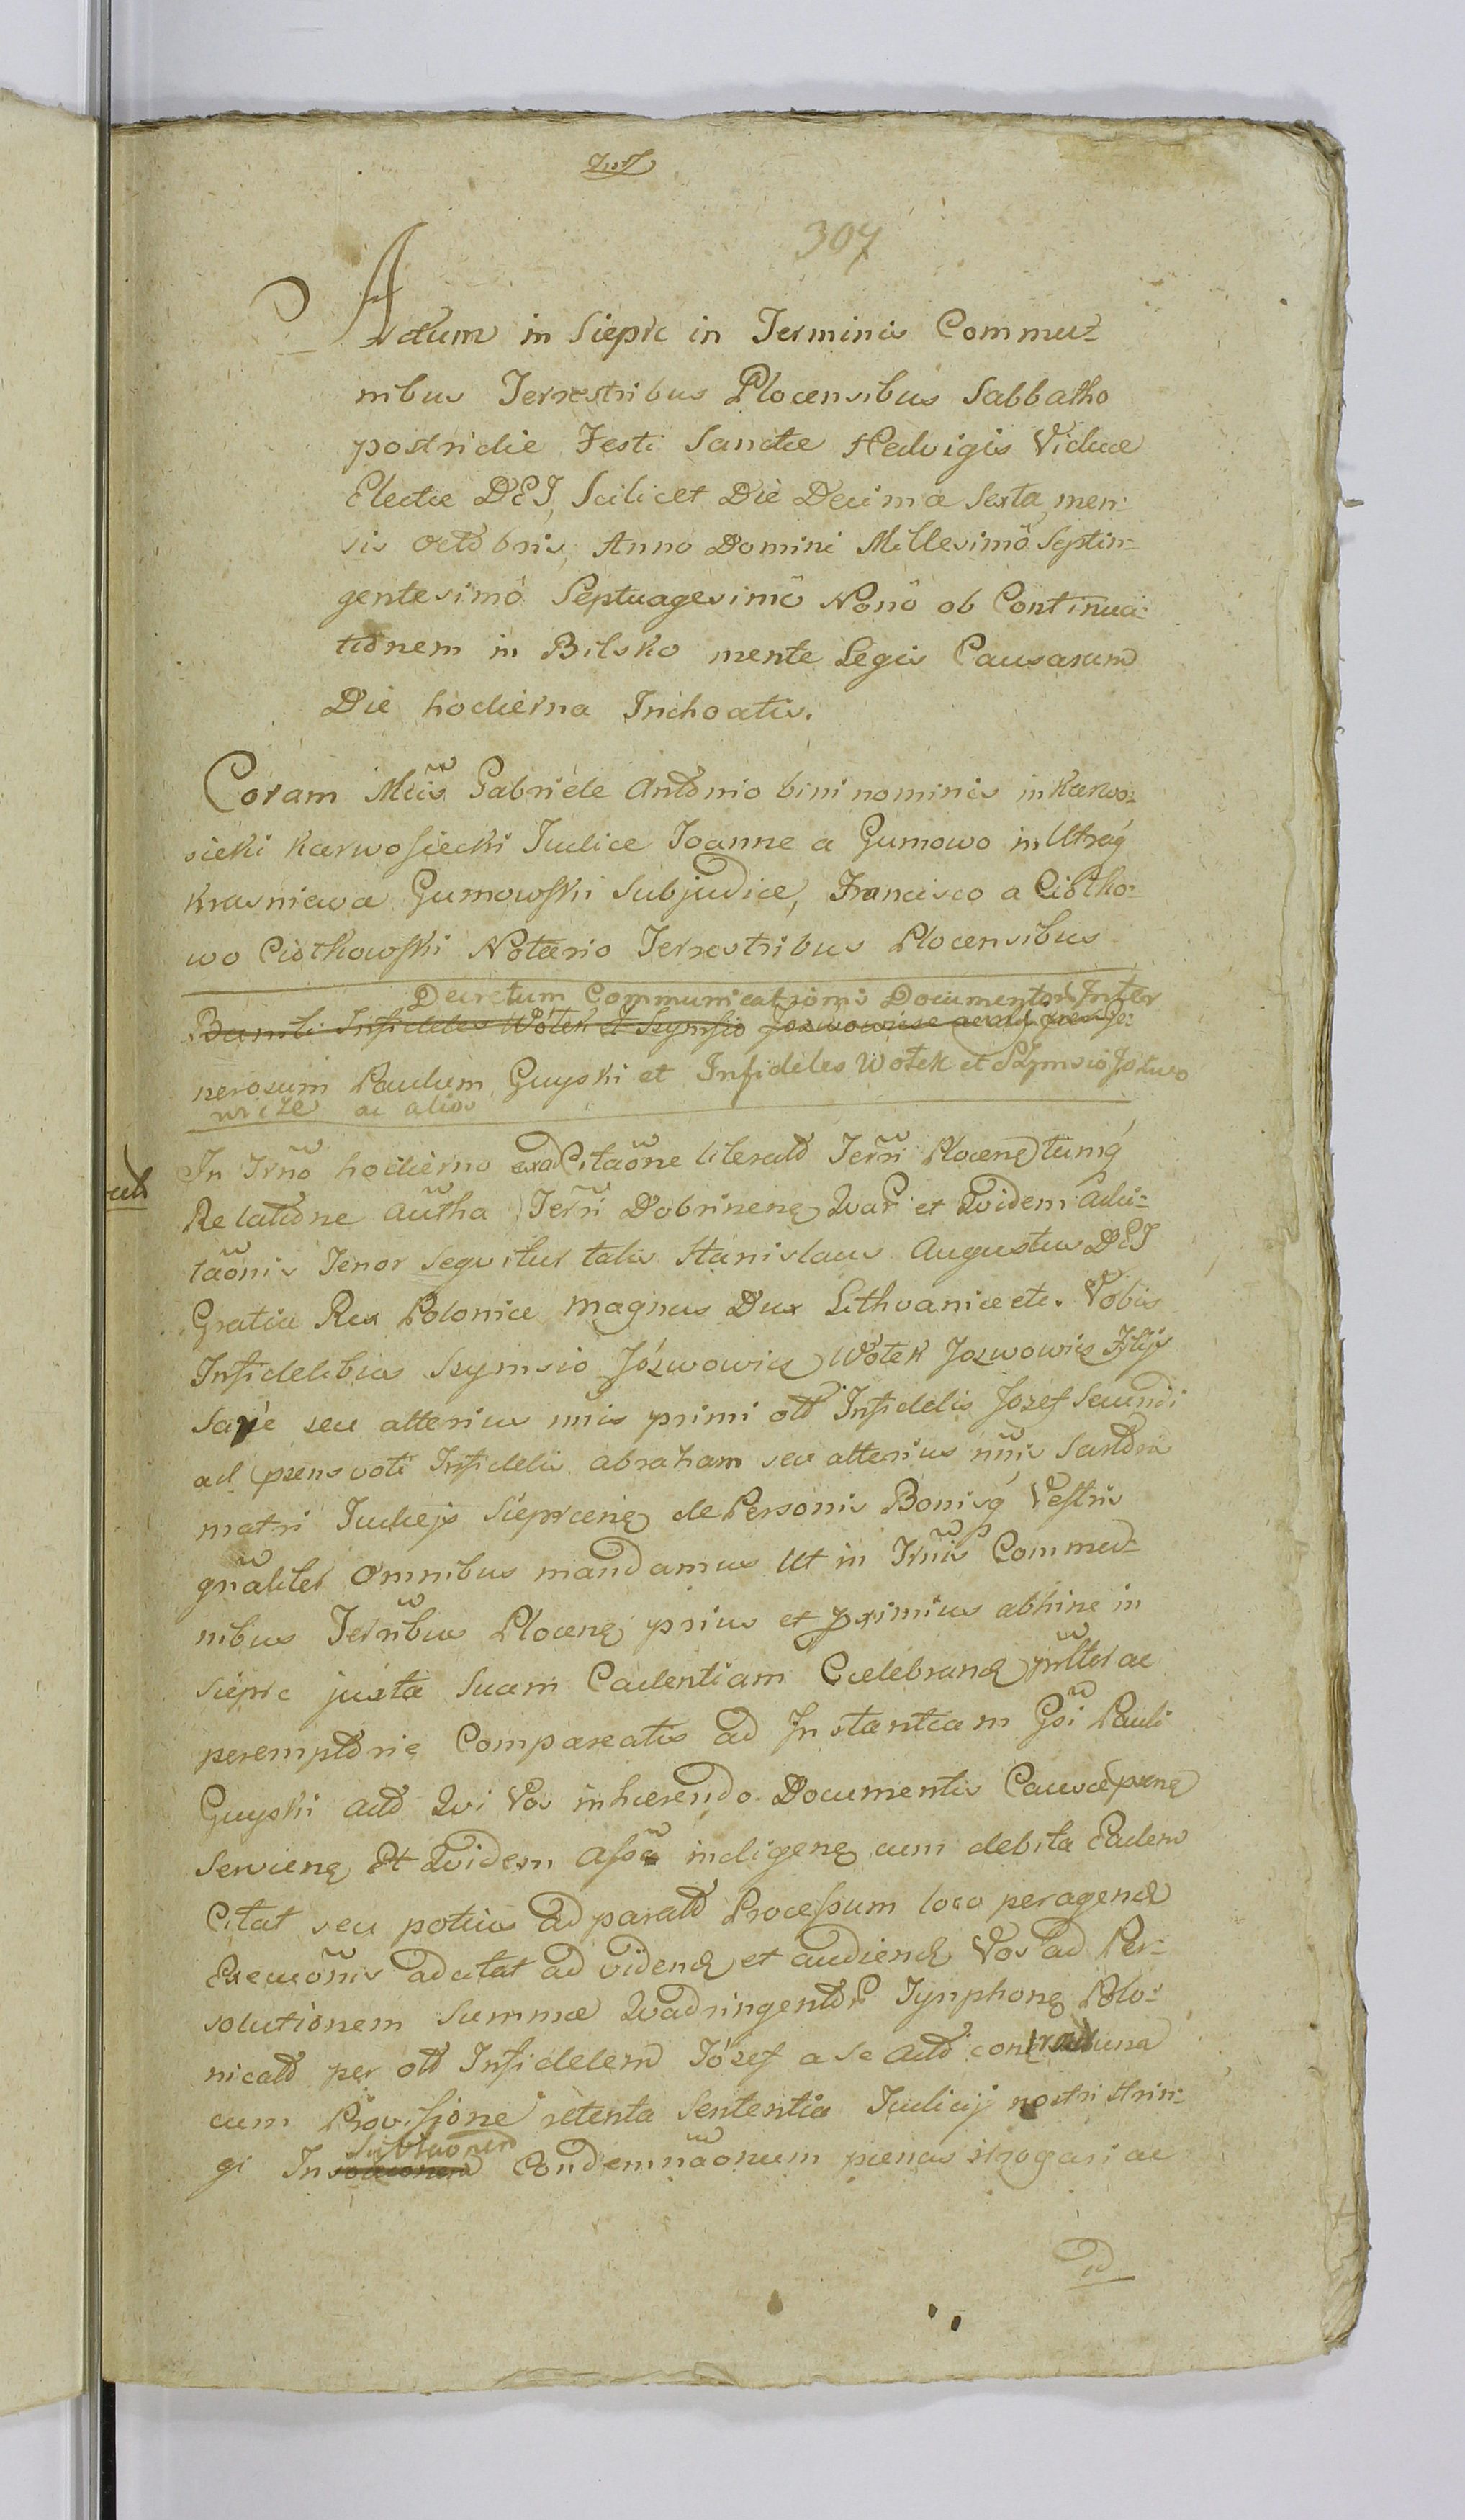 307
Actum in Sieprc in Terminis Commu-
nibus Terrestribus Plocensibus Sabbatho
postridie Festi Sanctæ Hedvigis Viduæ
Electæ DEI, Scilicet Die Decima Sexta men-
sis Octobris, Anno Domini Millesimo Septin-
gentesimo Septuagesimo Nono ob Continua-
tionem in Bilsko mente Legis Causarum
Die hodierna Inchoatis.
Coram Mcis Gabriele Antonio bini nominis in Karwo-
sieki Karwosiecki Judice Joanne a Gumowo in Utraq
Krasniewa Gumowski Subjudice, Francisco a Ciołko-
wo Ciołkowski Notario Terrestribus Plocensibus
Decretum Communicationis Documentor Inter
Infideles Wołek et Szymsio Ge-
nerosum Paulum Guyski et Infideles Wołek et Szymsio Jozwo
wicze ac alios
In Trno hodierno Citaõne literali Terri Plocens tumq
Relatione autha Terri Dobrinens et Qvidem Adci-
taõnis Tenor Seqvitur talis Stanislaus Augustus DEI
Gratia Rex Poloniæ Magnus Dux Lithvaniæ etc. Vobis
Infidelibus Szymsio Józwowicz Wołek Jozwowicz Filijs
seu alterius nnis primi olt Infidelis Jozef Secundi
ad præns voti Infidelis Abraham seu alterius nnis
Judæjs Sieprcens de Personis Bonisq Vestris
gnaliter Omnibus mandamus Ut in Trnis Commu-
nibus Terribus Plocens prius et pximius abhinc in
Sieprc juxta Suam Cadentiam Celebrand prlter ac
peremptorie Compareatis ad Instantiam Gsi Pauli
Guyski Act Qvi Vos inhærendo Documentis Causæ præns
Serviens Et Qvidem indigens cum debita Eadem
Citat seu potius ad parat Processum loco peragend
Execuõnis adcitat ad vidend et audiend Vos ad Per-
solutionem Summæ Qvadringentor Tynphons Polo-
nical per olt Infidelem Józef a Se Act una
cum Provisione retenta Sententia Judicij nostri strin-
gi In Condemnaõnum pænas irrogari ac
id